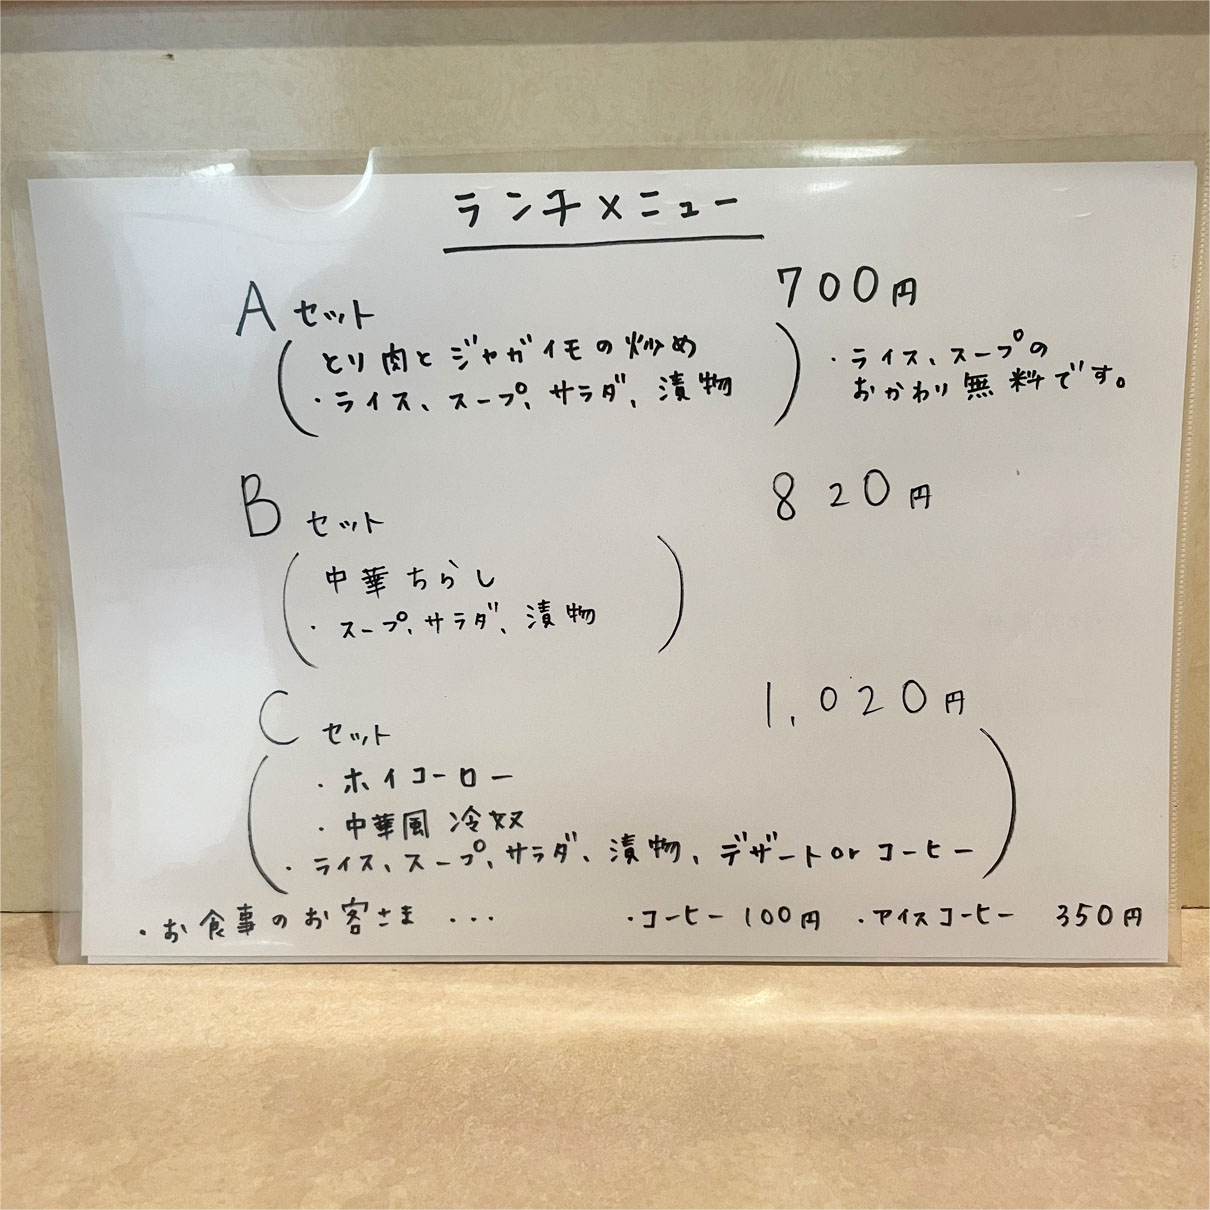 ランチメニュー
Aセット 700円
とり肉とジャガイモの炒め
・ライス、スープ、サラダ、漬物
・ライス、スープの
おかわり無料です。
Bセット 820円
中華ちらし
・スープ、サラダ、漬物
Cセット 1,020円
・ホイコーロー
・中華風冷奴
・ライス、スープ、サラダ、漬物、デザートorコーヒー
・お食事のお客さま・・・ ・コーヒー 100円 ・アイスコーヒー 350円